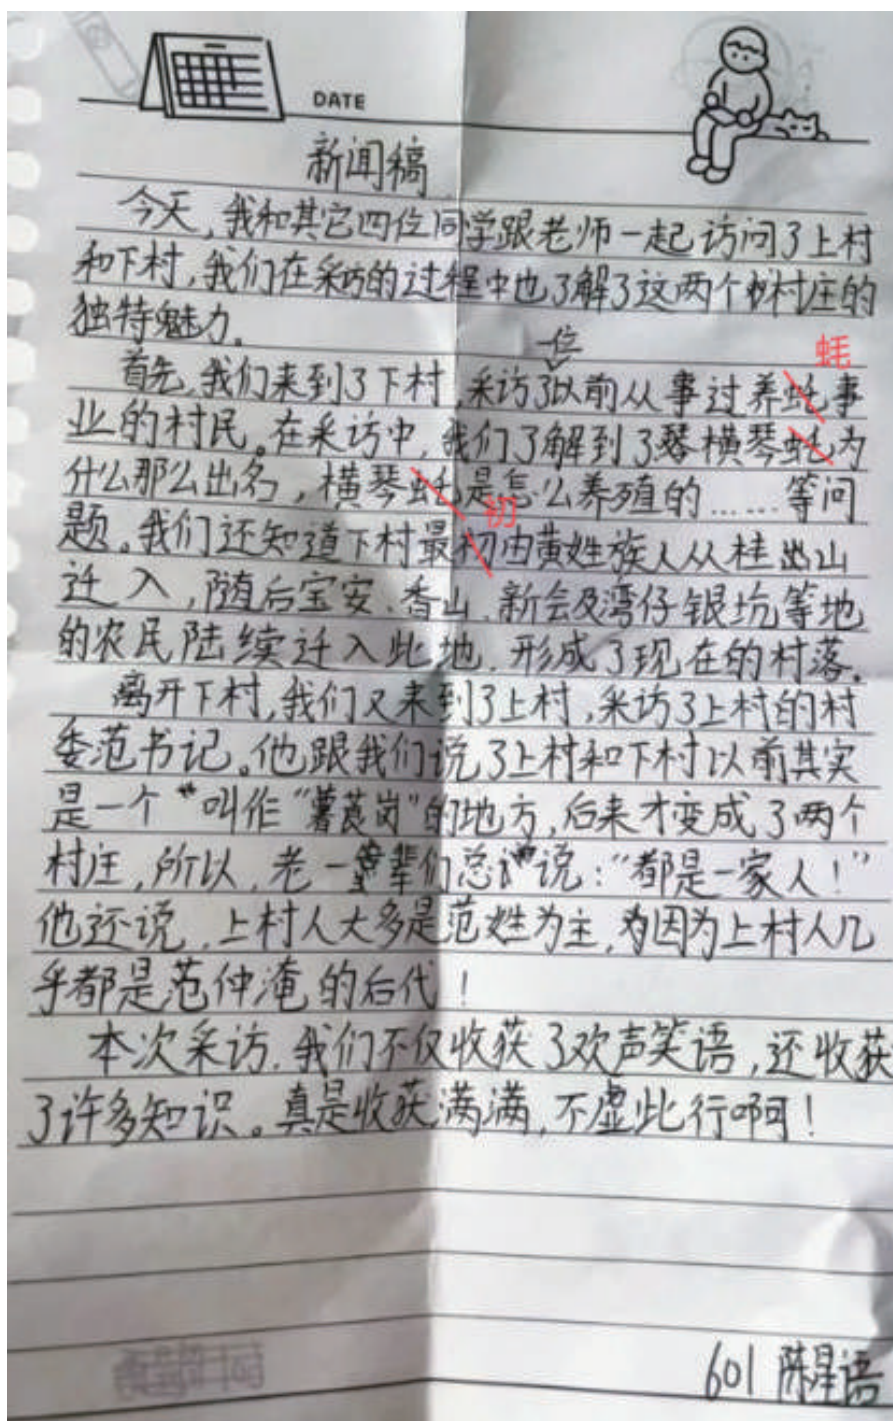 DATE
新闻稿
今天,我和其它四位同学跟老师一起访问了上村
和下村,我们在采访的过程中也了解了这两个村庄的
独特魅力。
一位
蚝
首先,我们来到了下村,采访了以前从事过养蚝事
业的村民。在采访中,我们了解到了横琴蚝为
什么那么出名,横琴蚝是怎么养殖的……等问
初
题。我们还知道下村最初由黄姓族人从桂山
迁入,随后宝安、香山、新会及湾仔银坑等地
的农民陆续迁入此地,形成了现在的村落。
离开下村,我们又来到了上村,采访了上村的村
委范书记。他跟我们说了上村和下村以前其实
是一个叫作“薯莨岗”的地方,后来才变成了两个
村庄,所以,老一辈们总说:“都是一家人!”
他还说,上村人大多是范姓为主,因为上村人几
乎都是范仲淹的后代!
本次采访,我们不仅收获了欢声笑语,还收获
了许多知识。真是收获满满,不虚此行啊!
601 陈星语